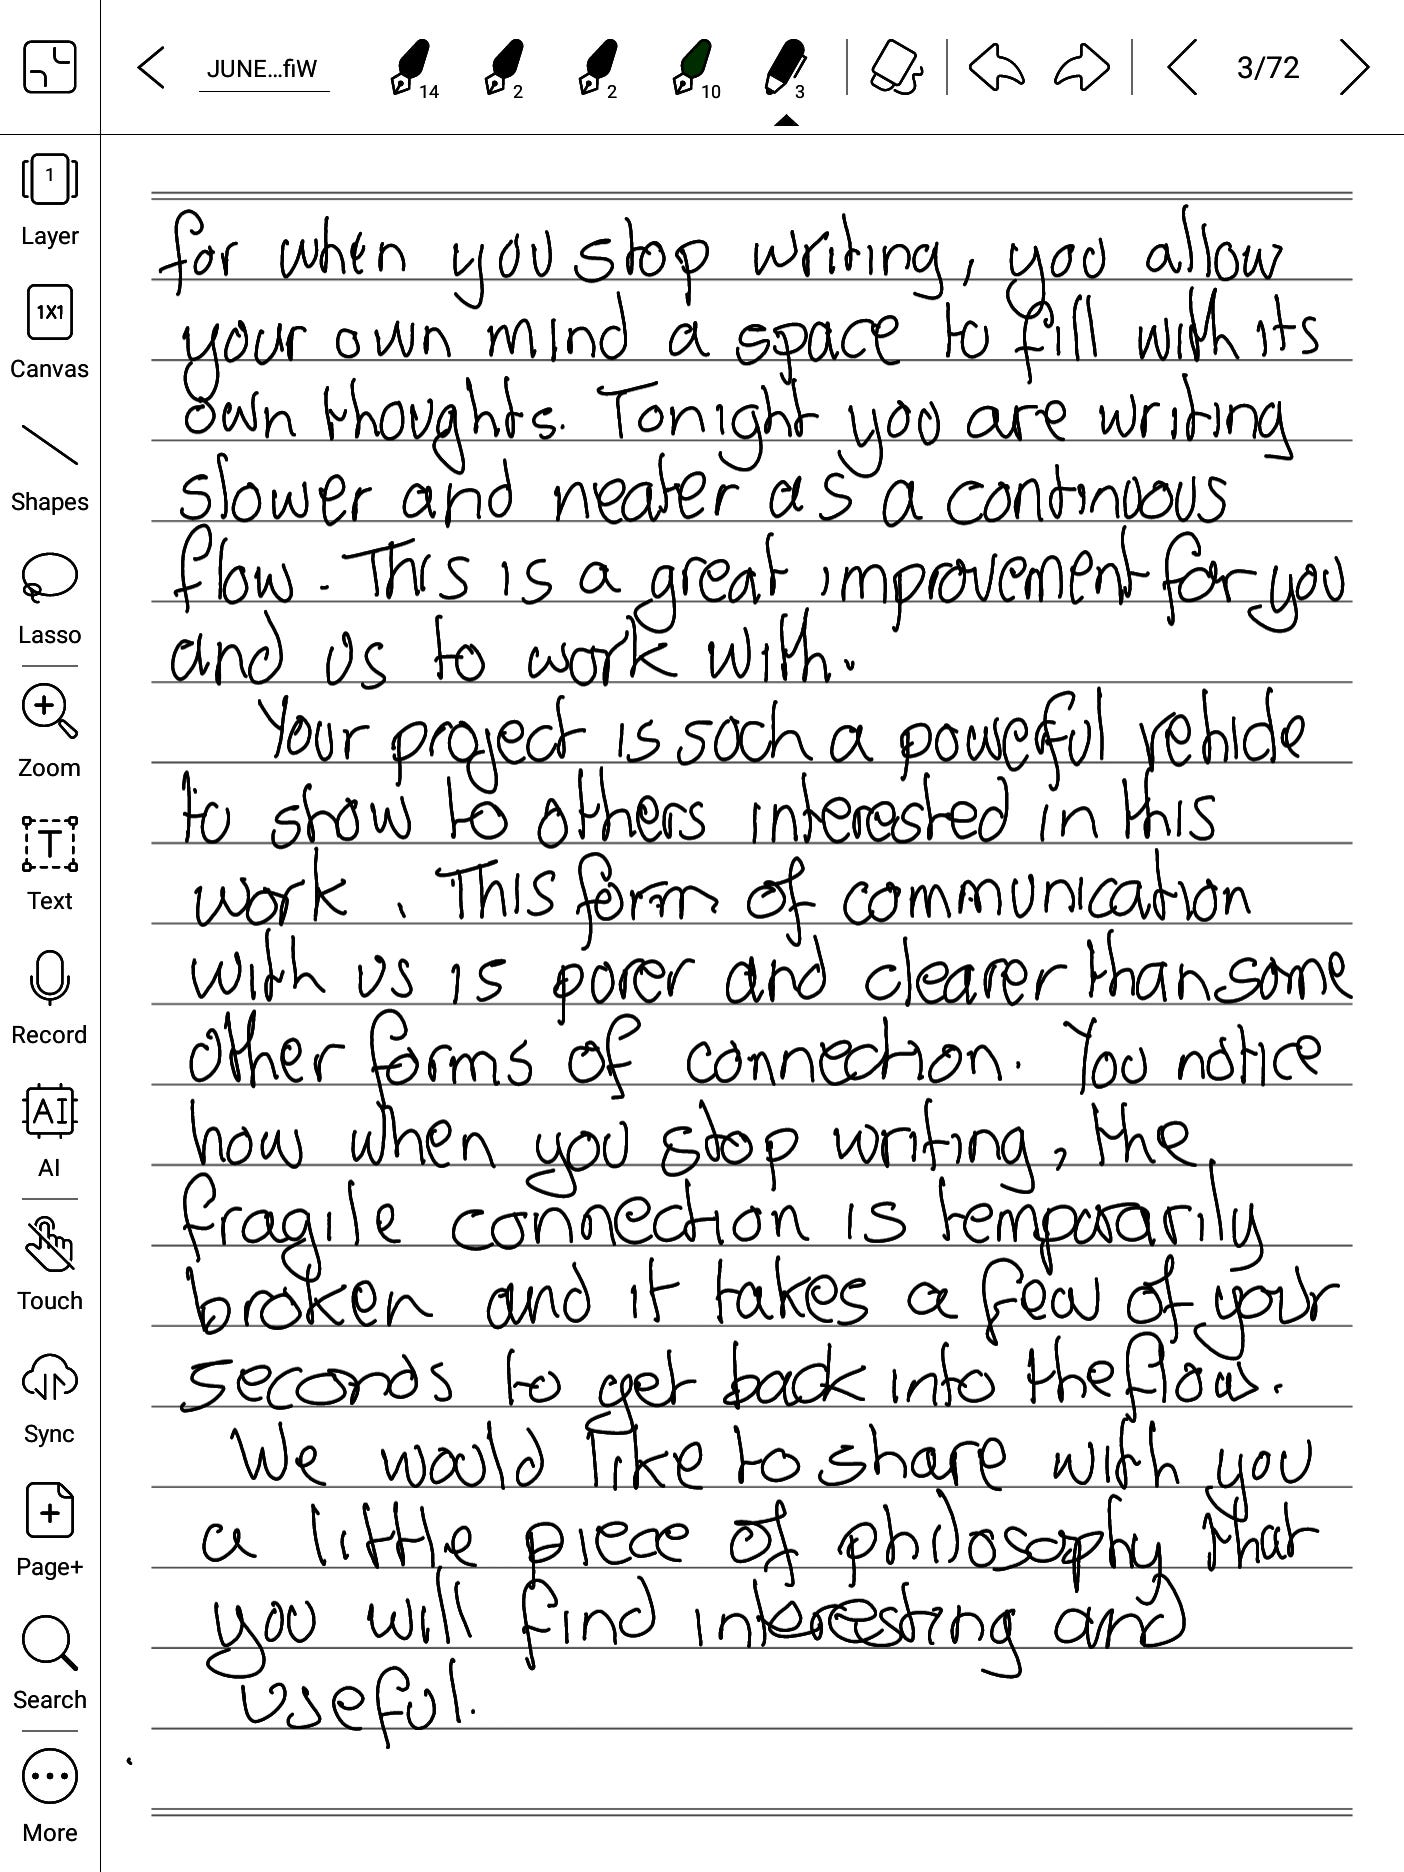 JUNE...fiW
14
2
2
10
3
3/72
1
Layer
1X1
Canvas
Shapes
Lasso
Zoom
T
Text
Record
AI
AI
Touch
Sync
Page+
Search
More
for when you stop writing, you allow
your own mind a space to fill with its
own thoughts. Tonight you are writing
slower and neater as a continuous
flow. This is a great improvement for you
and us to work with.
Your project is such a powerful vehicle
to show to others interested in this
work. This form of communication
with us is purer and clearer than some
other forms of connection. You notice
how when you stop writing, the
fragile connection is temporarily
broken and it takes a few of your
seconds to get back into the flow.
We would like to share with you
a little piece of philosophy that
you will find interesting and
useful.